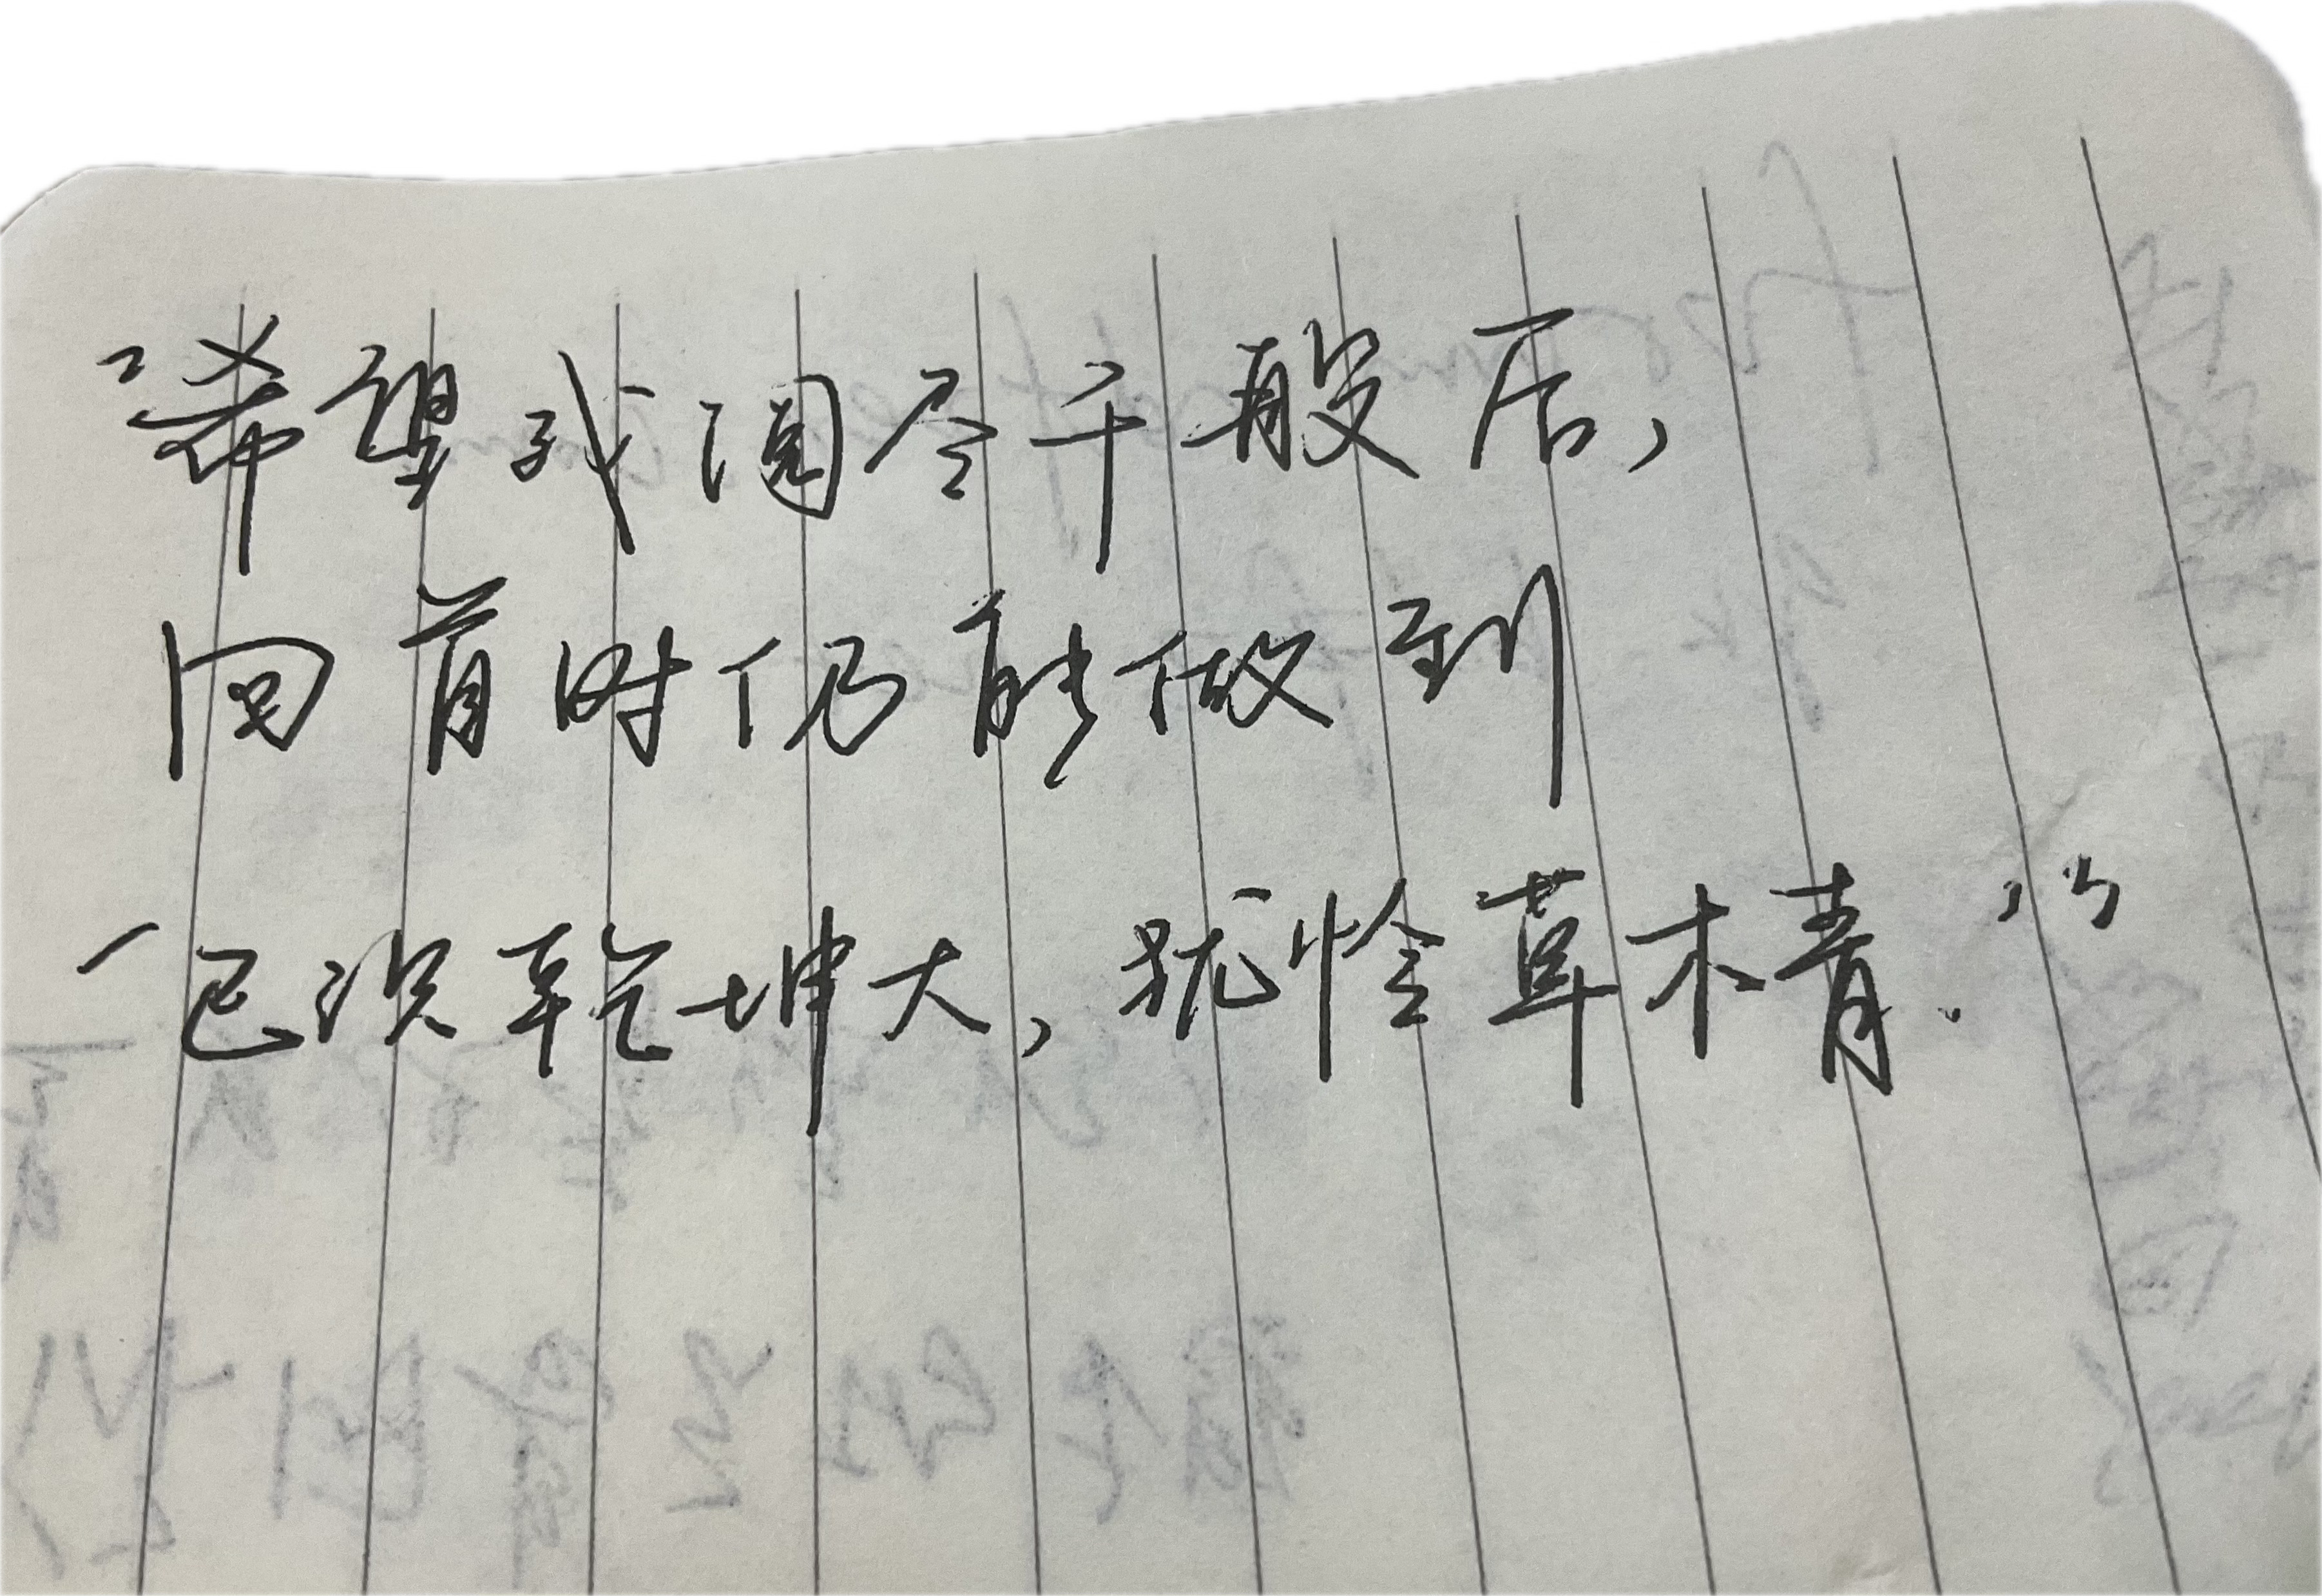 “希望我阅尽千般后，
回首时仍能做到
‘已识乾坤大，犹怜草木青.’”